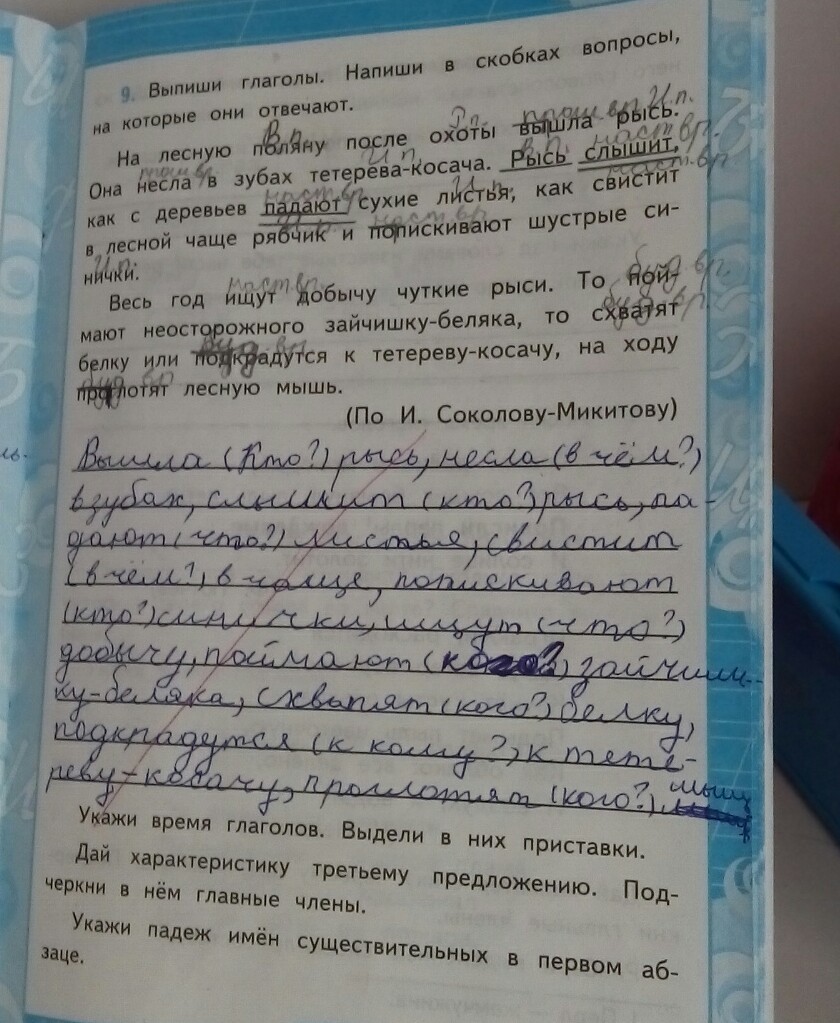 9. Выпиши глаголы. Напиши в скобках вопросы,
на которые они отвечают.
В.п. Р.п. прош.вр. И.п.
На лесную поляну после охоты вышла рысь.
прош.вр. И.п. В.п. наст.вр.
Она несла в зубах тетерева-косача. Рысь слышит,
наст.вр. И.п. наст.вр.
как с деревьев падают сухие листья, как свистит
наст.вр.
в лесной чаще рябчик и попискивают шустрые си-
И.п.
нички.
наст.вр. буд.вр.
Весь год ищут добычу чуткие рыси. То пой-
буд.вр.
мают неосторожного зайчишку-беляка, то схватят
буд.вр.
белку или подкрадутся к тетереву-косачу, на ходу
буд.вр.
проглотят лесную мышь.
(По И. Соколову-Микитову)
Вышла (кто?) рысь, несла (в чём?)
в зубах, слышит (кто?) рысь, па-
дают (что?) листья, свистит
(в чём?) в чаще, попискивают
(кто?) синички, ищут (что?)
добычу, поймают (кого?) зайчиш-
ку-беляка, схватят (кого?) белку,
подкрадутся (к кому?) к тете-
реву-косачу, проглотят (кого?) мышь
Укажи время глаголов. Выдели в них приставки.
Дай характеристику третьему предложению. Под-
черкни в нём главные члены.
Укажи падеж имён существительных в первом аб-
заце.